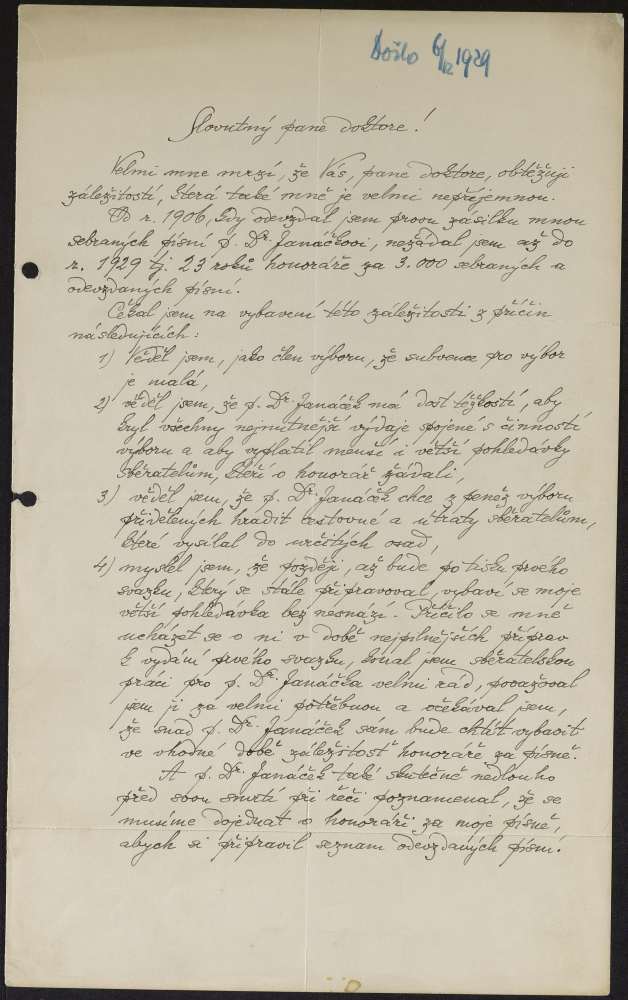 Došlo 6/12 1929
Slovutný pane doktore!
Velmi mne mrzí, že Vás, pane doktore, obtěžuji
záležitostí, která také mně je velmi nepříjemnou.
Od r. 1906, kdy odevzdal jsem prvou zásilku mnou
sebraných písní p. Dr. Janáčkovi, nežádal jsem až do
r. 1929 tj. 23 roků honoráře za 3.000 sebraných a
odevzdaných písní.
Čekal jsem na vybavení této záležitosti z příčin
následujících:
1) Věděl jsem, jako člen výboru, že subvence pro výbor
je malá,
2) věděl jsem, že p. Dr. Janáček má dost těžkostí, aby
kryl všechny nejnutnější výdaje spojené s činností
výboru a aby vyplatil menší i větší pohledávky
sběratelům, kteří o honorář žádali,
3) věděl jsem, že p. Dr. Janáček chce z peněz výboru
přidělených hradit cestovné a útraty sběratelům,
které vysílal do určitých osad,
4) myslel jsem, že později, až bude po tisku prvého
svazku, který se stále připravoval, vybaví se moje
větší pohledávka bez nesnází. Příčilo se mně
ucházet se o ni v době nejpilnějších příprav
k vydání prvého svazku, konal jsem sběratelskou
práci pro p. Dr. Janáčka velmi rád, považoval
jsem ji za velmi potřebnou a očekával jsem,
že snad p. Dr. Janáček sám bude chtít vybavit
ve vhodné době záležitost honoráře za písně.
A p. Dr. Janáček také skutečně nedlouho
před svou smrtí při řeči poznamenal, že se
musíme dojednat o honoráři za moje písně,
abych si připravil seznam odevzdaných písní.